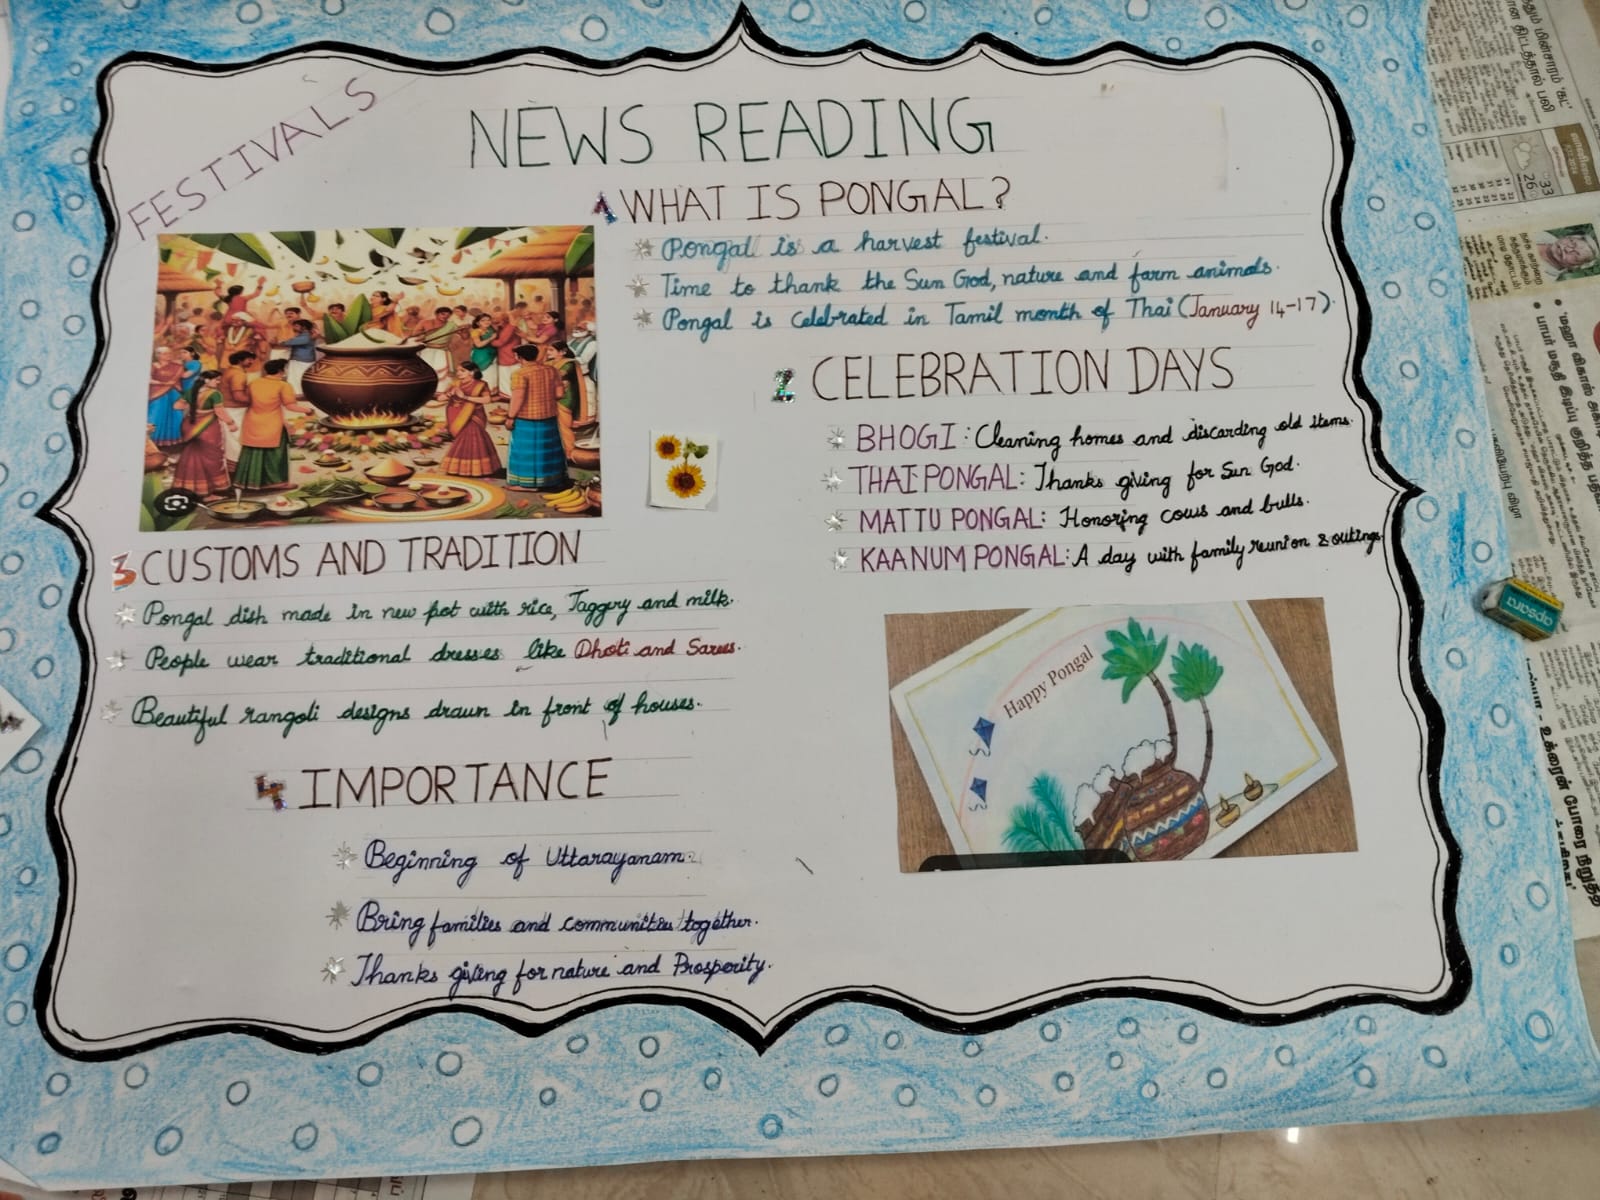 FESTIVALS
NEWS READING
1 WHAT IS PONGAL?
Pongal is a harvest festival.
Time to thank the Sun God, nature and farm animals.
Pongal is celebrated in Tamil month of Thai (January 14-17)
2 CELEBRATION DAYS
BHOGI: Cleaning homes and discarding old items.
THAI-PONGAL: Thanks giving for Sun God.
MATTU PONGAL: Honoring cows and bulls.
KAANUM PONGAL: A day with family reunion & outings
3 CUSTOMS AND TRADITION
Pongal dish made in new pot with rice, Jaggery and milk.
People wear traditional dresses like Dhoti and Sarees.
Beautiful rangoli designs drawn in front of houses.
Happy Pongal
4 IMPORTANCE
Beginning of Uttarayanam.
Bring families and communities together.
Thanks giving for nature and Prosperity.
apsara
33
26